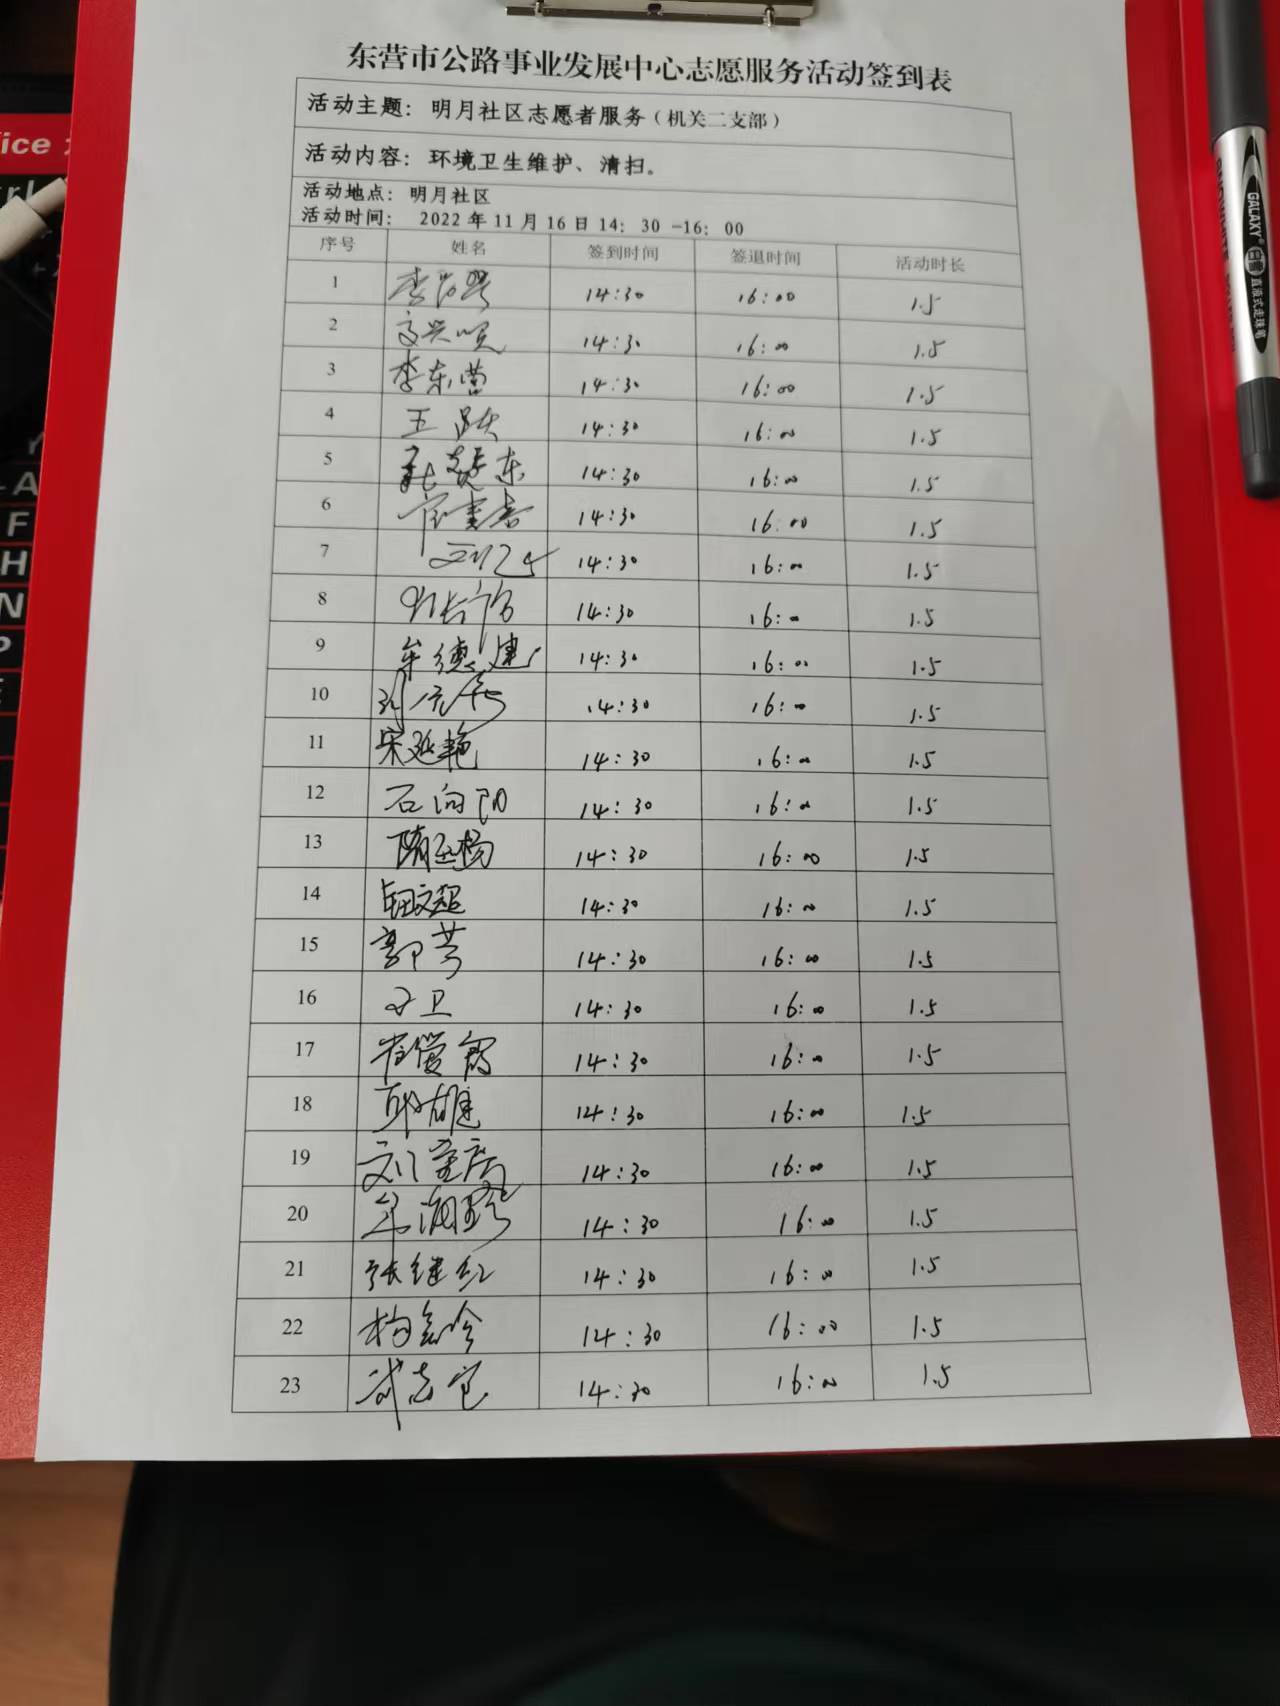 东营市公路事业发展中心志愿服务活动签到表
活动主题：明月社区志愿者服务（机关二支部）
活动内容：环境卫生维护、清扫。
活动地点：明月社区
活动时间： 2022年11月16日14：30-16：00
序号 姓名 签到时间 签退时间 活动时长
1 14:30 16:00 1.5
2 14:30 16:00 1.5
3 李东营 14:30 16:00 1.5
4 王跃 14:30 16:00 1.5
5 14:30 16:00 1.5
6 14:30 16:00 1.5
7 14:30 16:00 1.5
8 14:30 16:00 1.5
9 牟德建 14:30 16:00 1.5
10 14:30 16:00 1.5
11 宋延艳 14:30 16:00 1.5
12 石向阳 14:30 16:00 1.5
13 隋玉杨 14:30 16:00 1.5
14 14:30 16:00 1.5
15 郭芳 14:30 16:00 1.5
16 14:30 16:00 1.5
17 14:30 16:00 1.5
18 14:30 16:00 1.5
19 14:30 16:00 1.5
20 14:30 16:00 1.5
21 张继红 14:30 16:00 1.5
22 14:30 16:00 1.5
23 14:30 16:00 1.5
GALAXY
直液式走珠笔